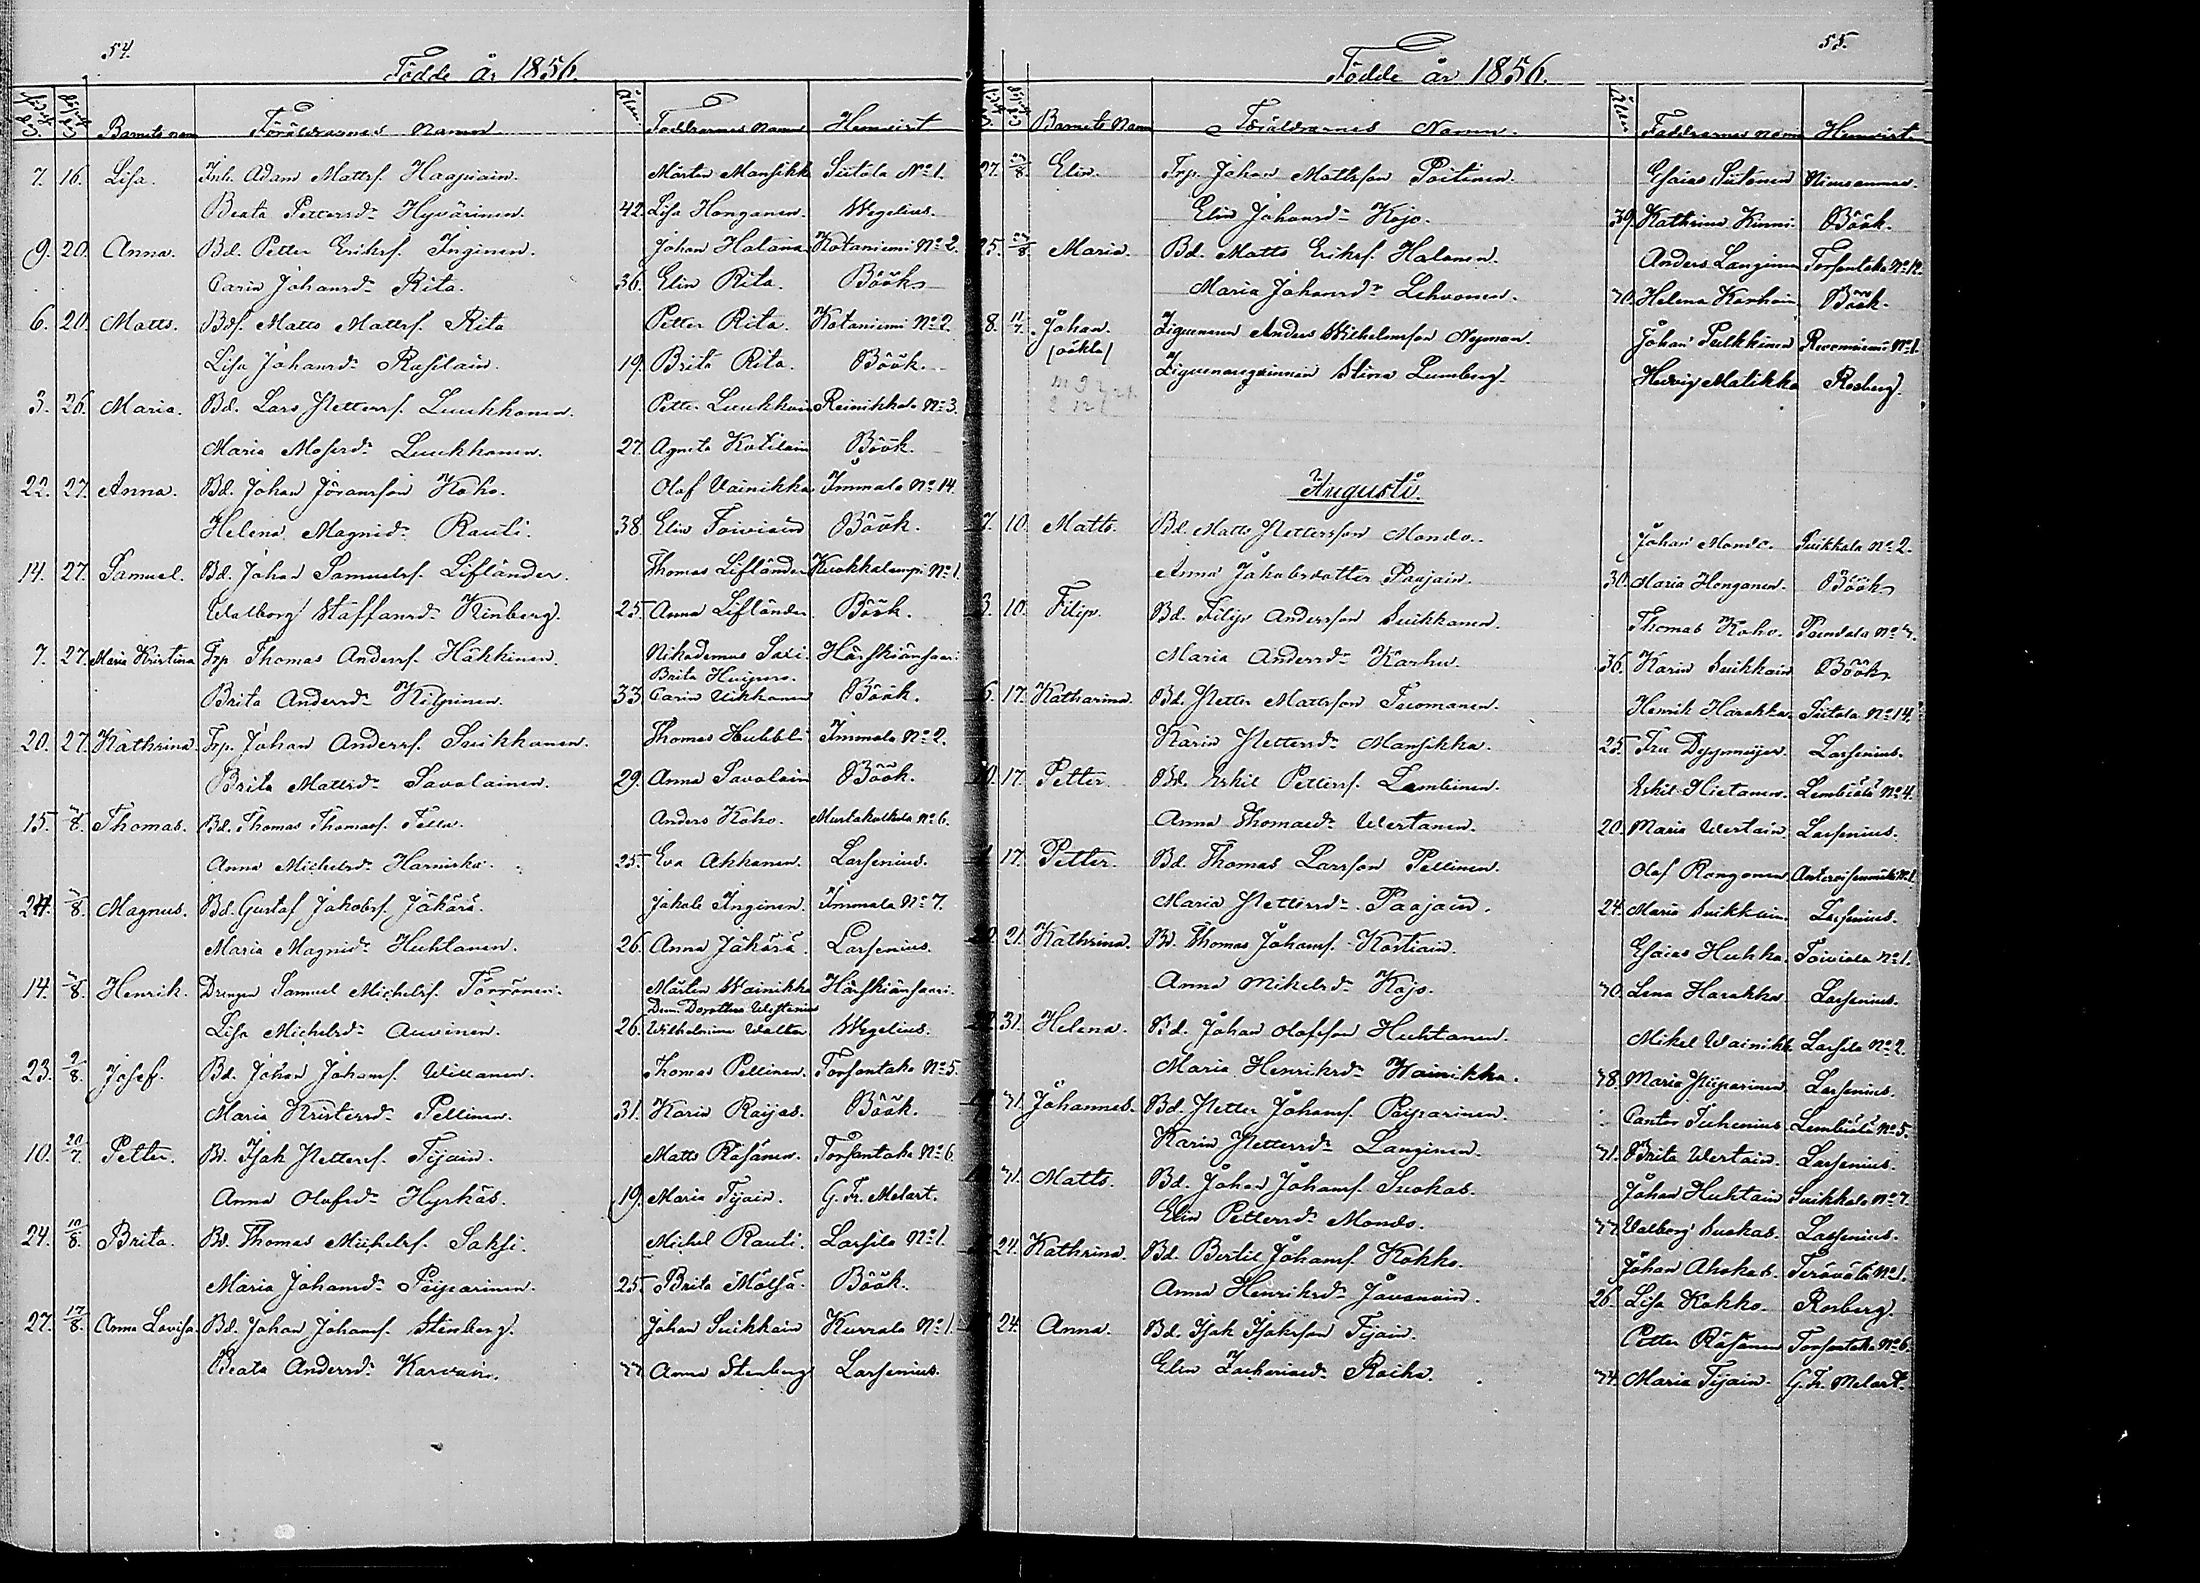 54.
Födde år 1856.
Födelse dag Döpelse dag Barnets namn Föräldrarnes namn Ålder Faddrarnes namn Hemvist
7. 16. Lisa. Inh. Adam Mattsf. Haapiain. Mårten Mansikk Siitola No 1.
Beata Pettersdr Hyvärinen. 42 Lisa Honganen. Wegelius.
9. 20. Anna. Bd. Petter Eriksf. Inginen. Johan Halana Kotaniemi No 2.
Carin Johansdr Rita. 36. Elin Rita. Böök
6. 20. Matts. Bdf. Matts Mattsf. Rita Petter Rita. Kotaniemi No 2.
Lisa Johansdr Rasilain. 19. Brita Rita. Böök.
3. 26. Maria. Bd. Lars Pettersf. Luukkonen. Petter Luukkain Reinikkala No 3.
Maria Mosesdr Luukkonen. 27. Agneta Kotilain Böök.
22. 27. Anna. Bd. Johan Jöransson Koho. Olof Vainikka Immala No 14.
Helena Magnidr Rauti. 38. Elin Toiviain Böök.
14. 27. Samuel. Bd. Johan Samuelsf. Lifländer. Thomas Lifländer Kuokkalampi No 1.
Walborg Staffansdr Kinberg. 25. Anna Lifländer Böök.
7. 27. Maria Kristina Trp Thomas Andersf. Häkkinen. Nikodemus Saxi. Härskiänsaari
Brita Huipero.
Brita Andersdr Kilpinen. 33 Carin Ukkonen Böök.
20. 27. Kathrina Trp. Johan Andersf. Suikkanen. Thomas Hubbli Immala No 2.
Brita Mattsdr Savolainen. 29. Anna Savolain Böök.
15. 3/8. Thomas. Bd. Thomas Thomasf. Tella. Anders Koho. Mustakulkula No 6.
Anna Michelsdr Harniska. 25. Eva Ahkanen. Larsenius.
24. 3/8. Magnus. Bd. Gustaf Jakobsf. Jäkärä. Jakob Inginen. Immala No 7.
Maria Magnidr Huhtanen. 26. Anna Jäkärä. Larsenius.
14. 3/8. Henrik. Drengen Samuel Michelsf. Törrönen. Mårten Wainikka Härskiänsaari.
Dem. Dorothea Westenius
Lisa Michelsdr Auvinen. 26. Wilhelmina Walter Wegelius.
23. 9/8. Josef. Bd. Johan Johansf. Willanen. Thomas Pellinen. Torsantaka No 5.
Maria Kristersdr Pellinen. 31. Karin Raijas. Böök.
10. 20/7. Petter. Bd. Isak Pettersf. Tijain. Matts Räsänen. Torsantaka No 6.
Anna Olofsdr Hyrkäs. 19. Maria Tijain. G. Fr. Melart.
24. 10/8. Brita. Bd. Thomas Michelsf. Saksi. Michel Rauti. Larsila No 1.
Maria Johansdr Peiparinen. 25. Brita Mölsä. Böök.
27. 17/8. Anna Lovisa. Bd. Johan Johansf. Stenberg. Johan Suikkain Kurrala No 1.
Beata Andersdr Karvain. Anna Stenberg Larsenius.
55.
Födde år 1856.
Födelse dag Döpelse dag Barnets Namn Föräldrarnes Namn. Ålder Faddrarnes namn Hemvist.
27. Elin. Trp. Johan Mattsson Poitinen. Esaias Siitonen
Elin Johansdr Kojo. 39. Kathrina Kinni. Böök.
25. Maria. Bd. Matts Eriksf. Halonen. Anders Langinen Torsantaka No 12.
Maria Johansdr Lehvonen. Helena Karhain. Böök.
8. 11/7. Johan. Zigenaren Anders Wilhelmsson Nyman. Johan Pulkkinen No 1.
/oäkta/ Zigenarqvinnan Stina Lumberg. Hedvig Matikka Rosberg.
Augusti.
7. 10. Matts. Bd. Matts Pettersson Mondo. Johan Mondo. Suikkala No 2.
Anna Jakobsdotter Paajain. 30. Maria Honganen. Böök
3. 10. Filip. Bd. Filip Andersson Suikkanen. Thomas Koho.
Maria Andersdr Karhu. 36. Karin Suikkain Böök
6. 17. Katharina. Bd. Petter Mattsson Tuomanen. Henrik Harakka. Siitola No 14.
Karin Pettersdr Mansikka. 25. Fru Larsenius.
17. Petter. Bd. Eskil Pettersf. Lembinen. Eskil Hietanen. Lembiälä No 4.
Anna Thomasdr Wertanen. 20. Maria Wertain. Larsenius.
17. Petter. Bd. Thomas Larsson Pellinen. Olof Rongonen.
Maria Pettersdr Paajain. 24. Maria Suikkain. Larsenius.
21. Kathrina. Bd. Thomas Johansf. Kostiain. Esaias Huhka. Toiviala No 1.
Anna Mikelsdr Kojo. Lena Harakka Larsenius.
31. Helena. Bd. Johan Olofsson Huhtanen. Mikel Wainikk. Larsila No 2.
Maria Henriksdr Wainikka. Maria Peiparinen Larsenius.
Johannes. Bd. Petter Johansf. Peiparinen. Cantor Lembiälä No 5.
Karin Pettersdr Langinen. Brita Wertain. Larsenius.
Matts. Bd. Johan Johansf. Suokas. Johan Huhtain Suikkala No 7.
Elin Pettersdr Mondo. Walborg Suokas. Larsenius.
24. Kathrina. Bd. Bertil Johansf. Kokko. Johan Ahokas. Terävälä No 1.
Anna Henriksdr Jävanain. 26. Lisa Kokko. Rosberg.
24. Anna. Bd. Isak Isaksson Tijain. Petter Räsänen Torsantaka No 6.
Elin Zachariasdr Roiha. Maria Tijain. G. Fr. Melart.